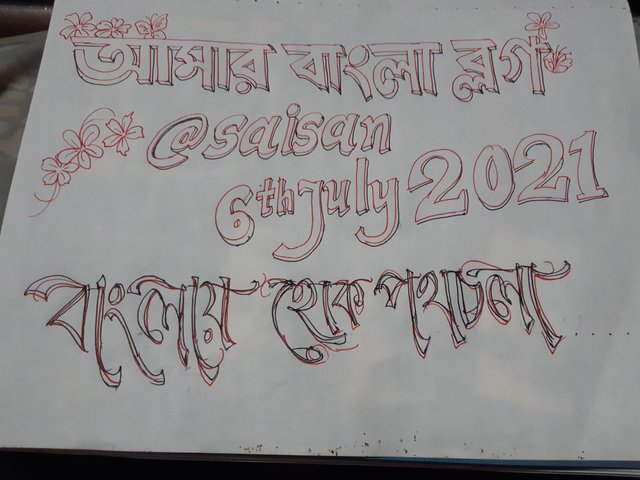 আমার বাংলা ব্লগ
@saisan
6th July 2021
বাংলায় হোক পথচলা